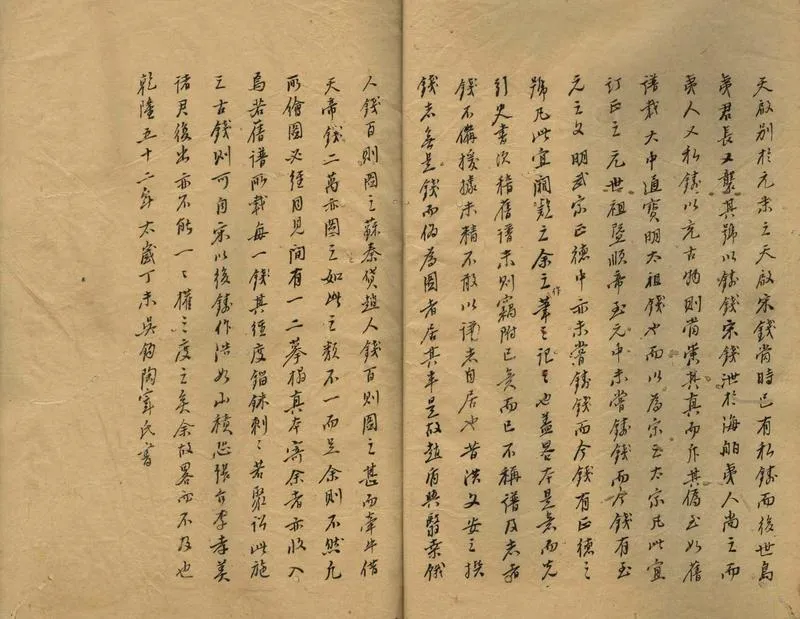 天啟別於元末之天啟宋錢當時已有私鑄而後世島
夷君長又襲其號以鑄錢宋錢泄於海舶夷人尚之而
夷人又私鑄以充古物則當鑒其真而斥其偽至如舊
譜載大中通寶明太祖錢也而以為宋至太宗凡此宜
訂正之元世祖暨順帝至元中未嘗鑄錢而今錢有至
元之文明武宗正德中亦未嘗鑄錢而今錢有正德之
號凡此宜闕疑之余之作筆之記之也蓋畧本是意而先
引史書次稽舊譜末則竊附已矣而已不稱譜及志者
錢不備援據未精不敢以譜志自居也昔洪文安之撰
錢志無是錢而偽為圖者居其半是故趙盾與翳桑餓
人錢百則圖之蘇秦貸趙人錢百則圖之甚而牽牛借
天帝錢二萬亦圖之如此之類不一而足余則不然凡
所繪圖必經目見間有一二摹搨真本寄余者亦收入
焉若舊譜所載每一錢其徑度錙銖刺刺若聚訟此施
之古錢則可自宋以後鑄作浩如山積恐張台李孝美
諸君復出亦不能一一權之度之矣余故畧而不及也
乾隆五十二年太歲丁未吳鈞陶宰氏書